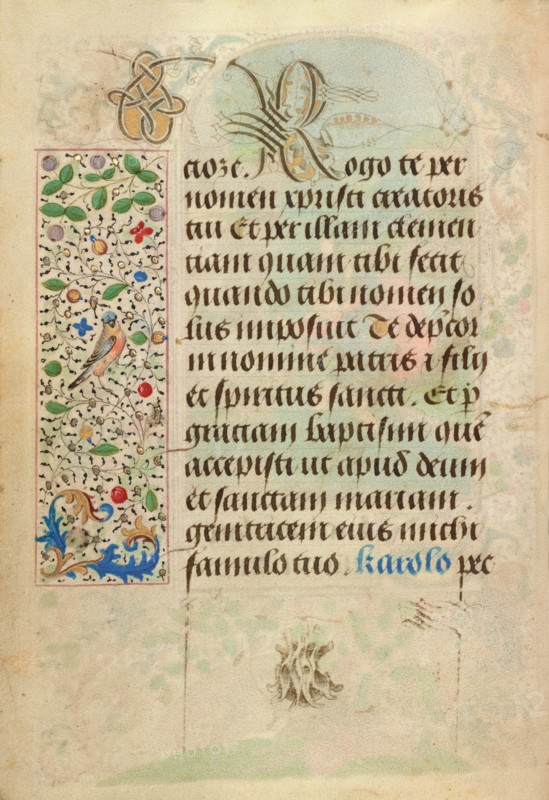 ctore. Rogo te per
nomen xpristi creatoris
tui Et per illam clemen
tiam quam tibi fecit
quando tibi nomen so
lus imposuit Te dep̃cor
in nomine patris ⁊ filij
et spiritus sancti. Et p̄
gratiam baptismi quē
accepisti ut apud deum
et sanctam mariam.
genitricem eius michi
famulo tuo. karolo pec